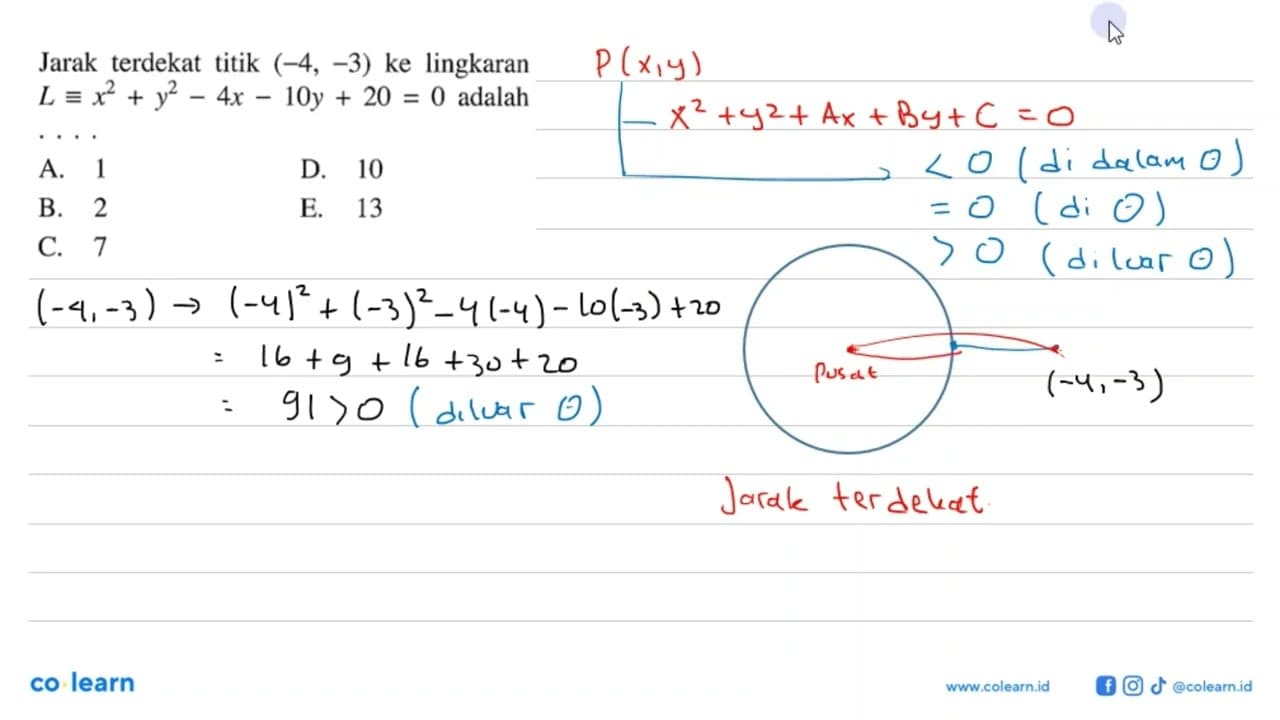 Jarak terdekat titik (−4, −3) ke lingkaran
L ≡ x² + y² − 4x − 10y + 20 = 0 adalah
. . . .
A. 1
B. 2
C. 7
D. 10
E. 13
P(x,y)
x² + y² + Ax + By + C = 0
< 0 (di dalam ʘ)
= 0 (di ʘ)
> 0 (diluar ʘ)
(-4,-3) → (-4)² + (-3)² - 4(-4) - 10(-3) + 20
= 16 + 9 + 16 + 30 + 20
= 91 > 0 (diluar ʘ)
Pusat
(-4,-3)
Jarak terdekat
co learn
www.colearn.id
@colearn.id